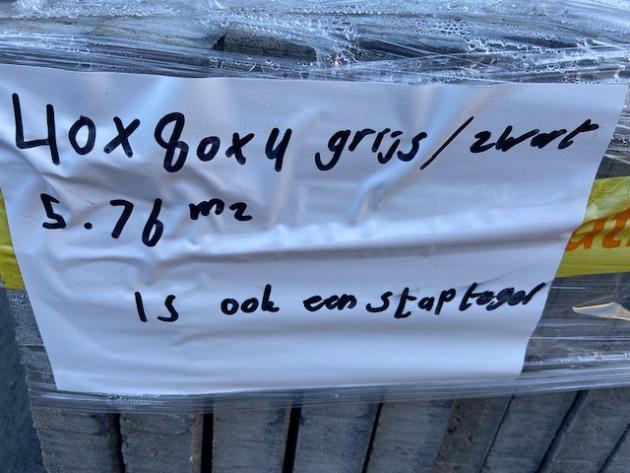 40x80x4 grijs/zwart
5.76 m2
Is ook een staptegel